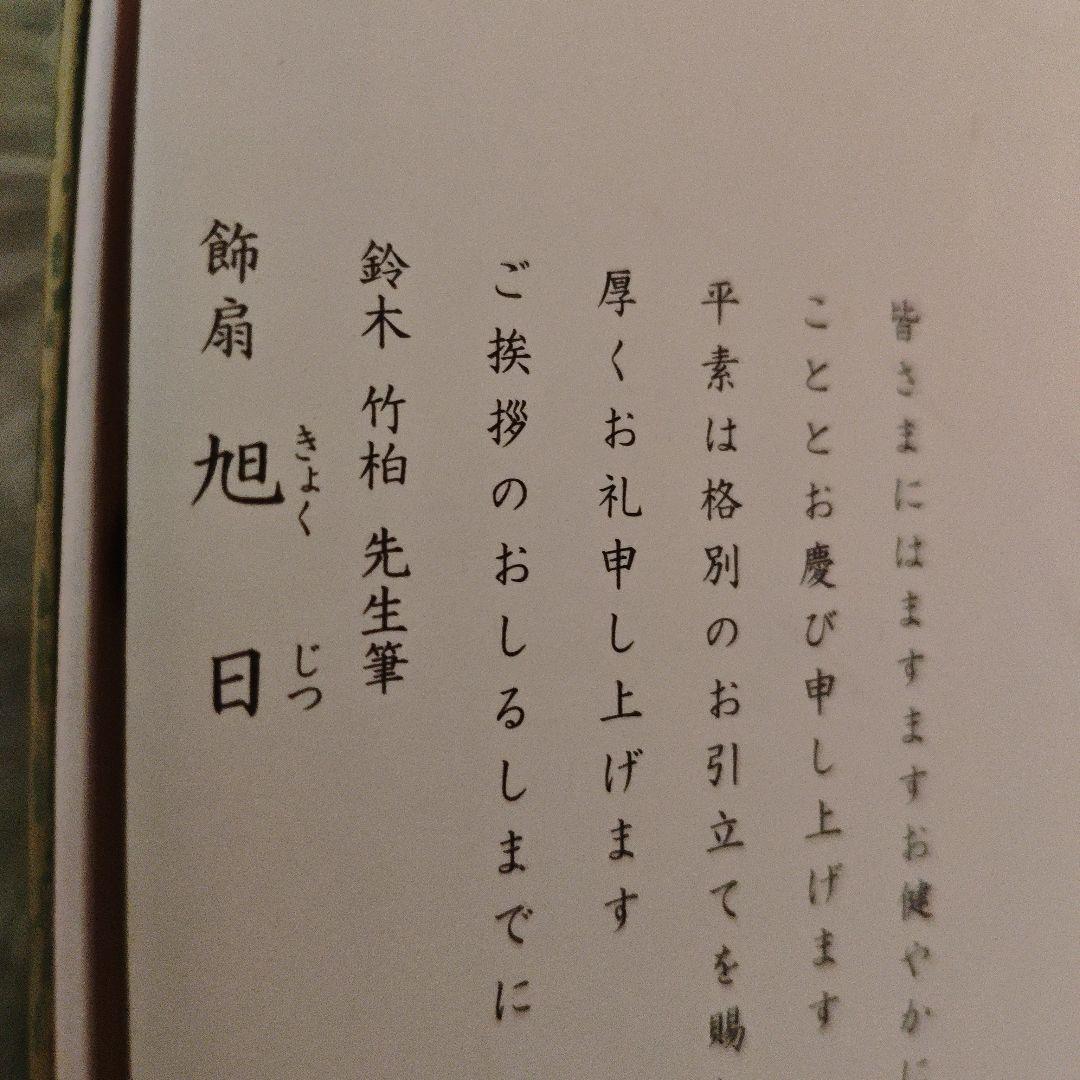 皆さまにはますますお健やかに
こととお慶び申し上げます
平素は格別のお引立てを賜
厚くお礼申し上げます
ご挨拶のおしるしまでに
鈴木 竹柏 先生筆
飾扇 旭日
きょく じつ